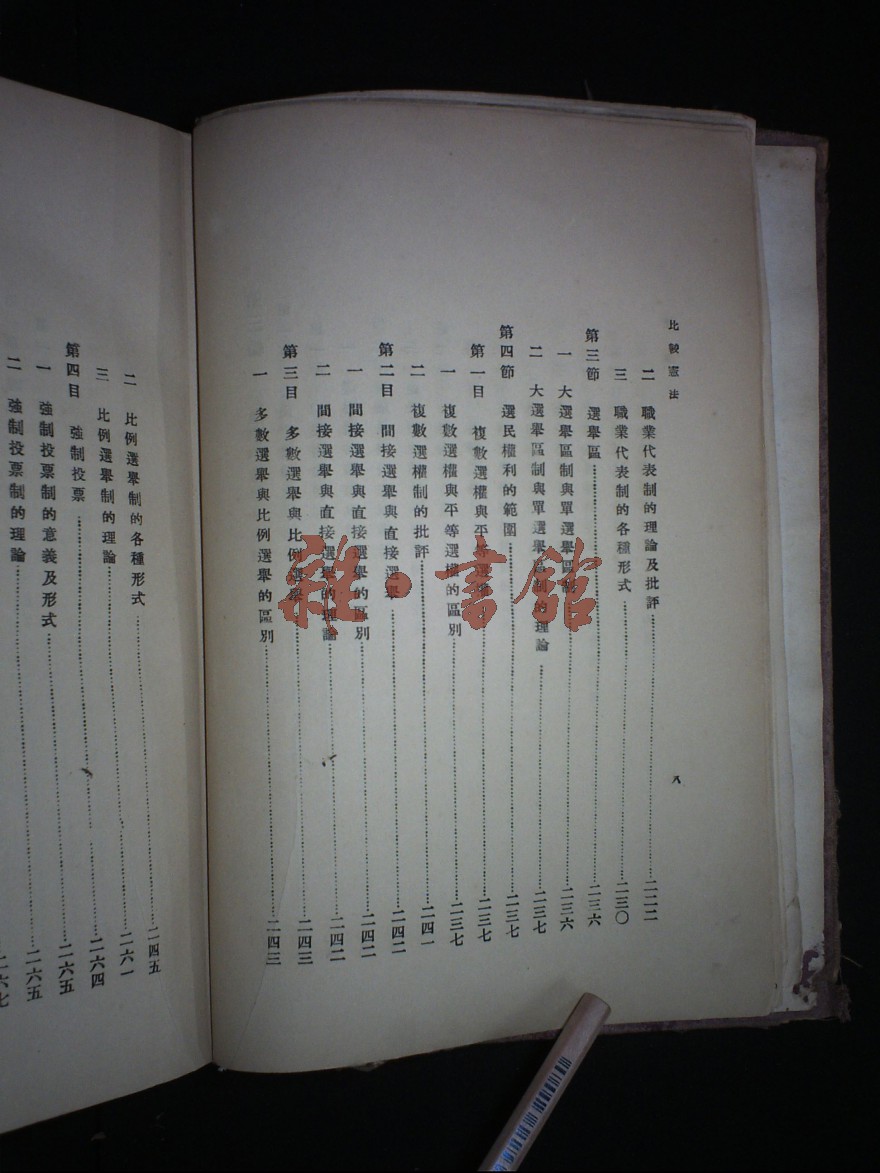 比較憲法
八
二 職業代表制的理論及批評……二二二
三 職業代表制的各種形式……二三〇
第三節 選舉區……二三六
一 大選舉區制與單選舉區制……二三六
二 大選舉區制與單選舉區制的理論……二三七
第四節 選民權利的範圍……二三七
第一目 複數選權與平等選權……二三七
一 複數選權與平等選權的區別……二三七
二 複數選權制的批評……二四一
第二目 間接選舉與直接選舉……二四二
一 間接選舉與直接選舉的區別……二四二
二 間接選舉與直接選舉的理論……二四二
第三目 多數選舉與比例選舉……二四三
一 多數選舉與比例選舉的區別……二四三
二 比例選舉制的各種形式……二四五
三 比例選舉制的理論……二六一
第四目 強制投票……二六四
一 強制投票制的意義及形式……二六五
二 強制投票制的理論……二六五
二六七
雜·書館